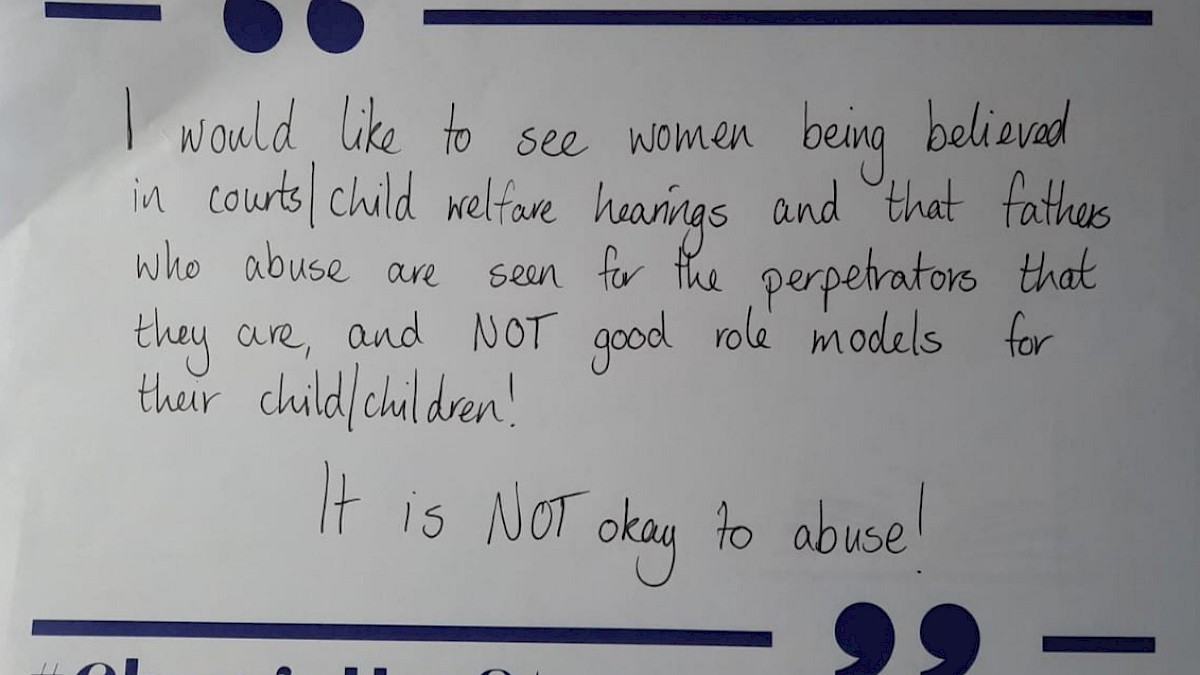 I would like to see women being believed
in courts/child welfare hearings and that fathers
who abuse are seen for the perpetrators that
they are, and NOT good role models for
their child/children!
It is NOT okay to abuse!